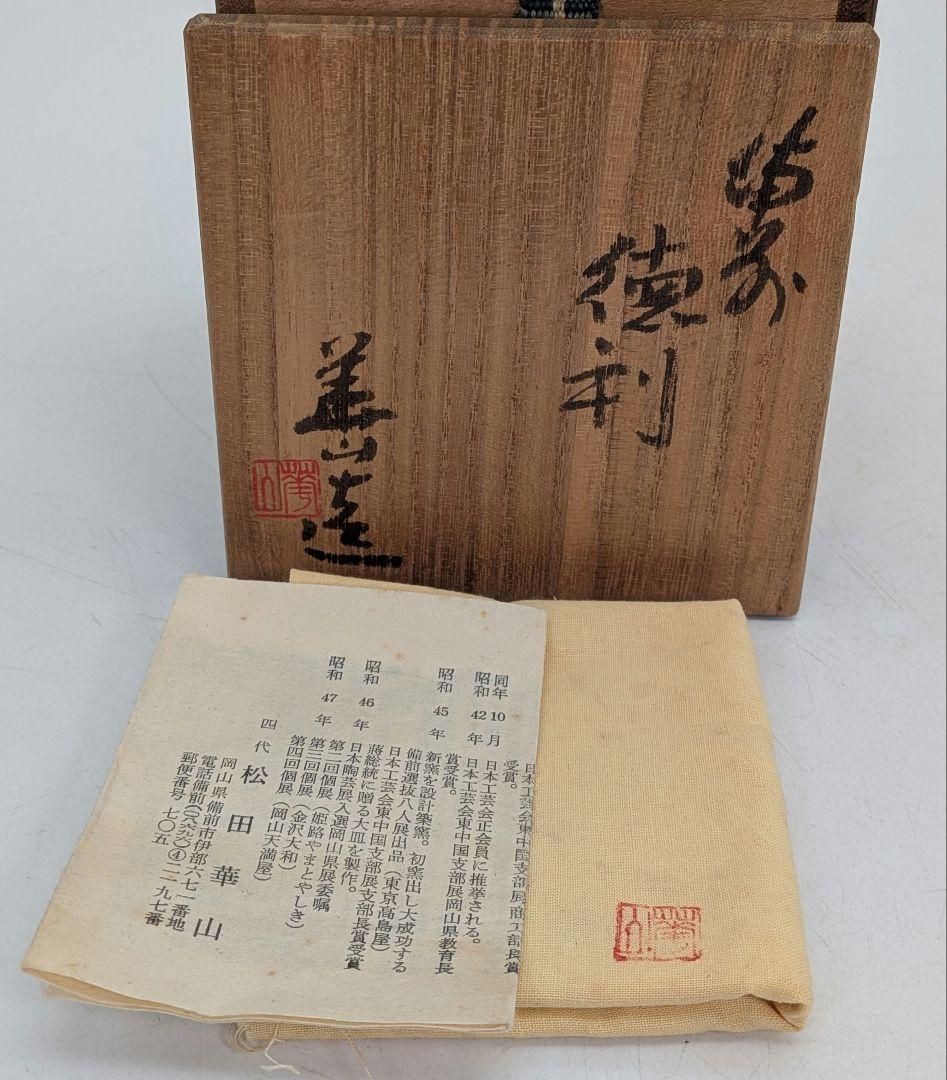 備前
徳利
華山造
華山
日本工芸会東中国支部展商工部長賞
受賞。
同年10月 日本工芸会正会員に推挙される。
昭和42年 日本工芸会東中国支部展岡山県教育長
賞受賞。
昭和45年 新窯を設計築窯。初窯出し大成功する
備前選抜八人展出品（東京高島屋）
日本工芸会東中国支部展支部長賞受賞
昭和46年 蔣総統に贈る大皿を製作。
日本陶芸展入選岡山県展委嘱
昭和47年 第二回個展（姫路やまとやしき）
第三回個展（金沢大和）
第四回個展（岡山天満屋）
四代 松田華山
岡山県備前市伊部六七一番地
電話備前(〇八六九六)④二二九七番
郵便番号 七〇五
華山